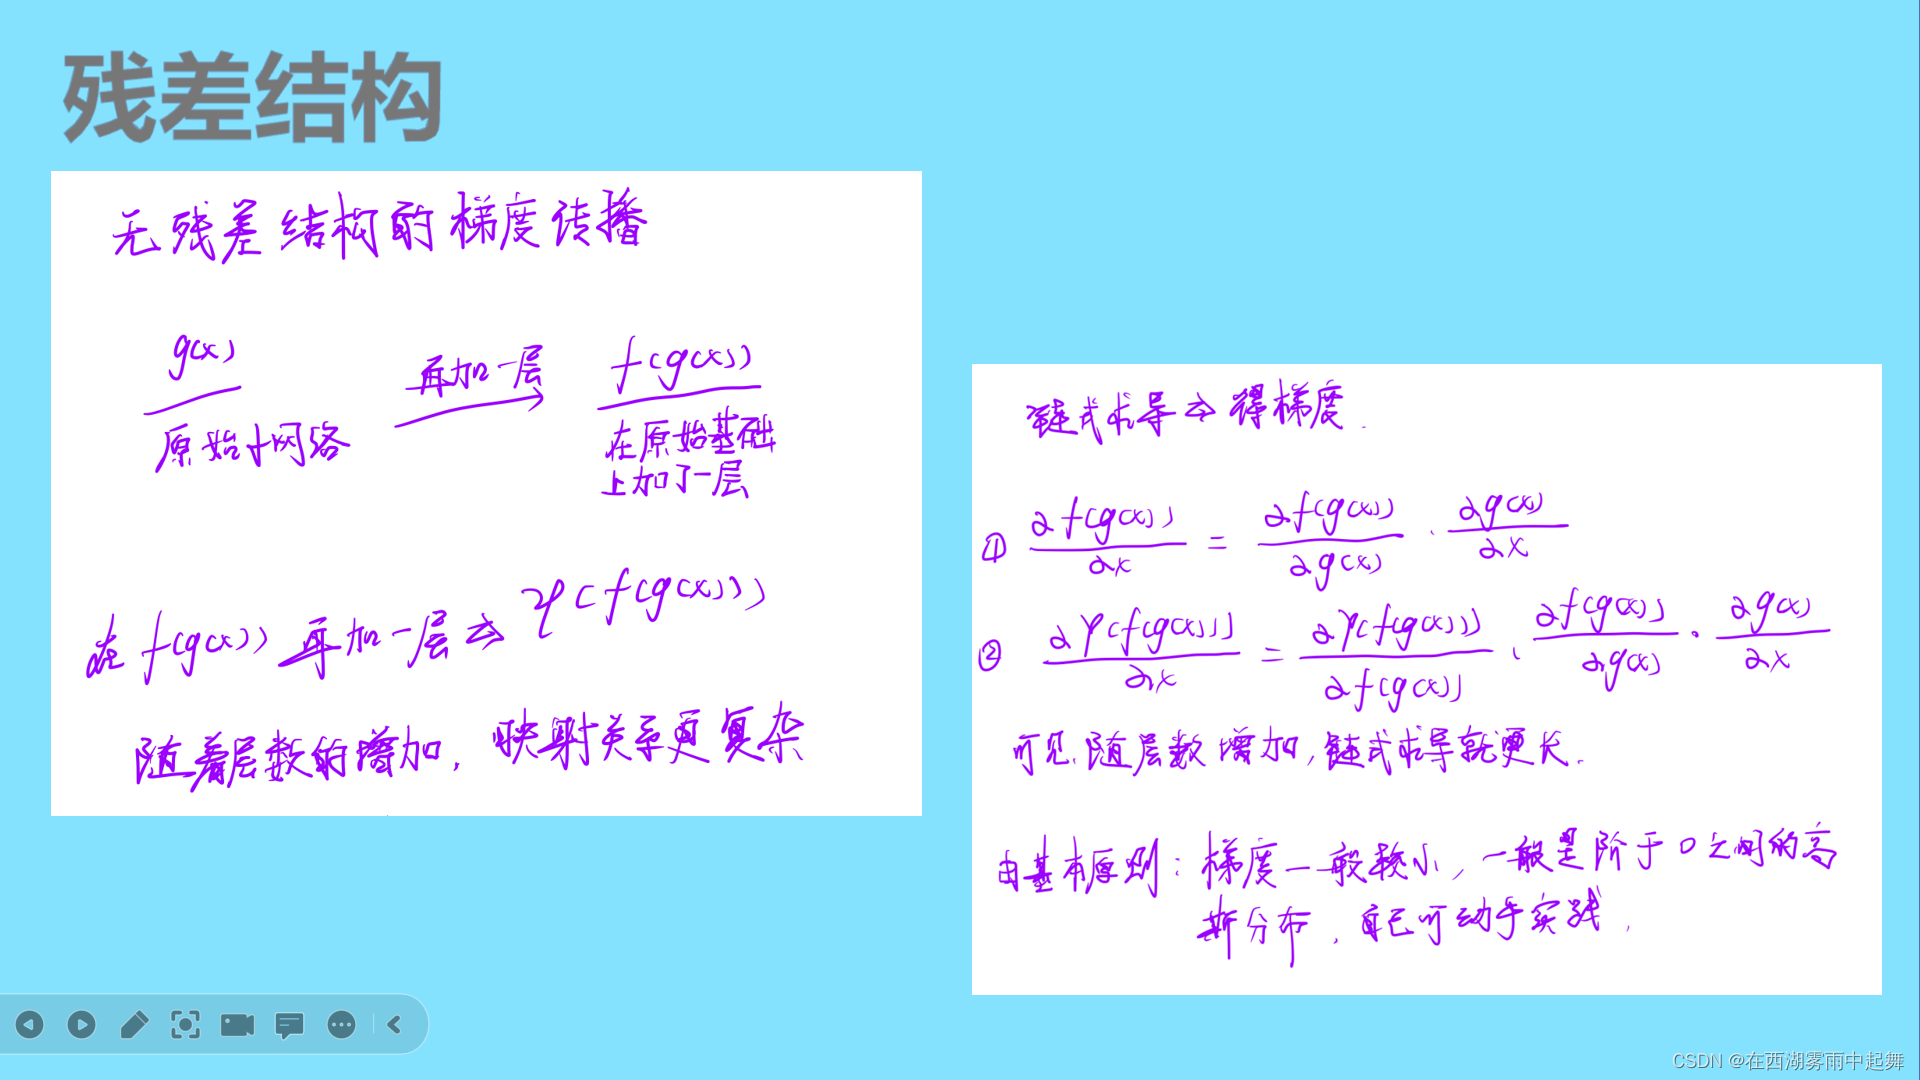 残差结构
无残差结构的梯度传播
g(x)
原始小网络
再加一层
f(g(x))
在原始基础
上加了一层
在 f(g(x)) 再加一层 ⇒ ψ(f(g(x)))
随着层数的增加, 映射关系更复杂
链式求导 ⇒ 得梯度.
① ∂f(g(x))/∂x = ∂f(g(x))/∂g(x) · ∂g(x)/∂x
② ∂ψ(f(g(x)))/∂x = ∂ψ(f(g(x)))/∂f(g(x)) · ∂f(g(x))/∂g(x) · ∂g(x)/∂x
可见, 随层数增加, 链式求导就更长.
由基本原则: 梯度一般较小, 一般是阶于0之间的高
斯分布, 自己可动手实践.
CSDN @在西湖雾雨中起舞